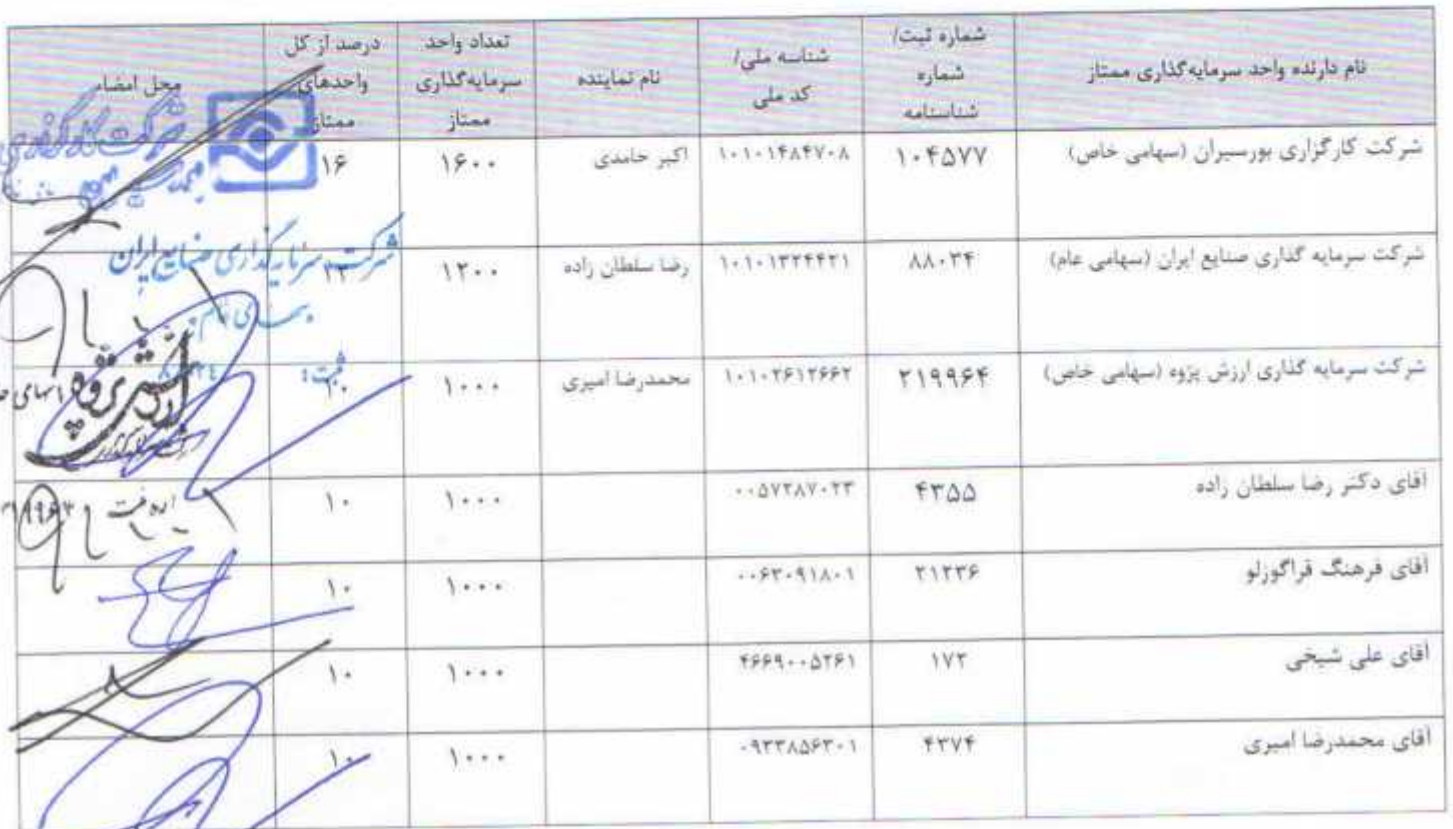 نام دارنده واحد سرمایه‌گذاری ممتاز شماره ثبت/ شماره شناسنامه شناسه ملی/ کد ملی نام نماینده تعداد واحد سرمایه‌گذاری ممتاز درصد از کل واحدهای ممتاز محل امضاء
شرکت کارگزاری بورسیران (سهامی خاص) ۱۰۴۵۷۷ ۱۰۱۰۱۴۸۴۷۰۸ اکبر حامدی ۱۶۰۰ ۱۶
شرکت سرمایه گذاری صنایع ایران (سهامی عام) ۸۸۰۳۴ ۱۰۱۰۱۳۲۴۴۲۱ رضا سلطان زاده
شرکت سرمایه گذاری صنایع ایران
شرکت سرمایه گذاری ارزش پژوه (سهامی خاص) ۲۱۹۹۶۴ ۱۰۱۰۲۶۱۲۶۶۲ محمدرضا امیری ۱۰۰۰ ۱۰
ثبت:
آقای دکتر رضا سلطان زاده ۴۳۵۵ ۱۰۰۰ ۱۰
آقای فرهنگ قراگوزلو ۱۰۰۰ ۱۰
آقای علی شیخی ۱۰۰۰ ۱۰
آقای محمدرضا امیری ۴۳۷۴ ۱۰۰۰ ۱۰